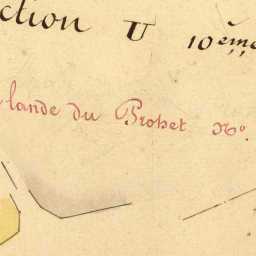 ction U 10ème
lande du Prohet No.